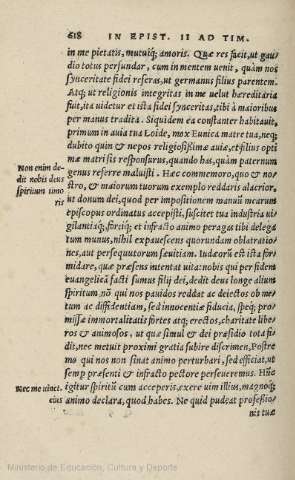 618 IN EPIST. II AD TIM.
in me pietatis, mutuiq; amoris. Quæ res facit, ut gau
dio totus perfundar, cum in mentem uenit, quàm nos
synceritate fidei referas, ut germanus filius parentem.
Atq; ut religionis integritas in me uelut hæreditaria
fuit, ita uidetur et ista fidei synceritas, tibi à maioribus
per manus tradita. Siquidem ea constanter habitauit,
primum in auia tua Loide, mox Eunica matre tua, neq;
dubito quin & nepos religiosissimæ auiæ, et filius opti
mæ matri sis responsurus, quando has, quàm paternum
genus referre maluisti. Hæc commemoro, quo & no
stro, & maiorum tuorum exemplo reddaris alacrior,
ut donum dei, quod per impositionem manuũ mearum
episcopus ordinatus accepisti, suscitet tua industria ui
gilantiaq;, fortiq; et infracto animo peragas tibi delega
tum munus, nihil expauescens quorundam oblatratio
nes, aut persequutorum sæuitiam. Iudæorũ est ista for
midare, quæ præsens intentat uita: nobis qui per fidem
euangelicã facti sumus filij dei, dedit deus longe alium
spiritum nõ qui nos pauidos reddat ac deiectos ob mor
tum ac diffidentiam, sed innocentiæ fiducia, speq; pro-
missæ immortalitatis fortes atq; erectos, charitate libe
ros & animosos, ut quæ simul & dei præsidio tota fi-
dit, nec metuit proximi gratia subire discrimen, Postre
mo qui nos non sinat animo perturbari, sed efficiat, ut
semp præsenti & infracto pectore perseueremus. Hũc
igitur spiritũ cum acceperis, exere uim illius, magnoq;
animo declara, quod habes. Ne quid pudeat professio
nis tuæ
Non enim de-
dit nobis deus
spiritum timo
ris
Nec me uinct.
eius
Ministerio de Educación, Cultura y Deporte